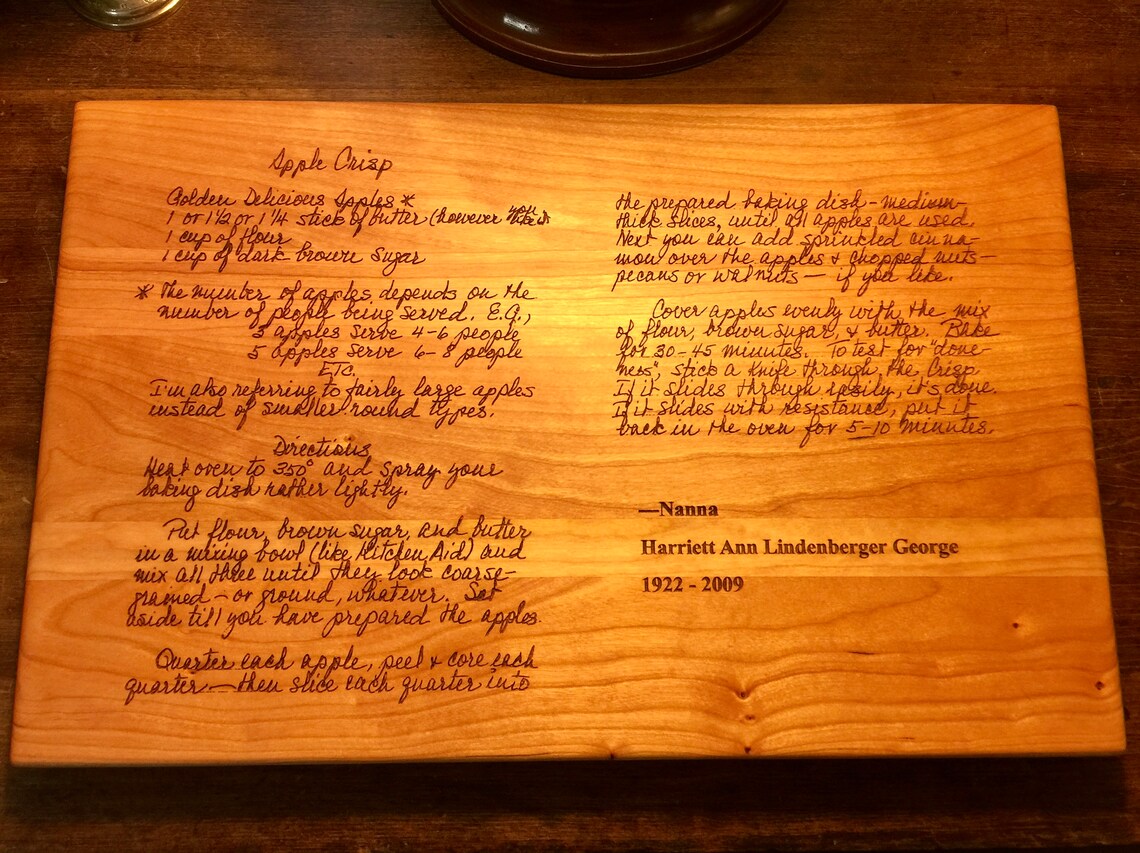 Apple Crisp
Golden Delicious Apples *
1 or 1 1/2 or 1 1/4 stick of butter (however you like it
1 cup of flour
1 cup of dark brown sugar
* The number of apples depends on the
number of people being served. E.G.,
3 apples serve 4-6 people
5 apples serve 6-8 people
ETC.
I'm also referring to fairly large apples
instead of smaller round types.
Directions
Heat oven to 350° and spray your
baking dish rather lightly.
Put flour, brown sugar, and butter
in a mixing bowl (like Kitchen Aid) and
mix all three until they look coarse-
grained – or ground, whatever. Set
aside till you have prepared the apples.
Quarter each apple, peel & core each
quarter — then slice each quarter into
the prepared baking dish – medium-
thick slices, until all apples are used.
Next you can add sprinkled cinna-
mon over the apples & chopped nuts –
pecans or walnuts — if you like.
Cover apples evenly with the mix
of flour, brown sugar, & butter. Bake
for 30-45 minutes. To test for "done-
ness", stick a knife through the Crisp.
If it slides through easily, it's done.
If it slides with resistance, put it
back in the oven for 5-10 minutes.
—Nanna
Harriett Ann Lindenberger George
1922 - 2009